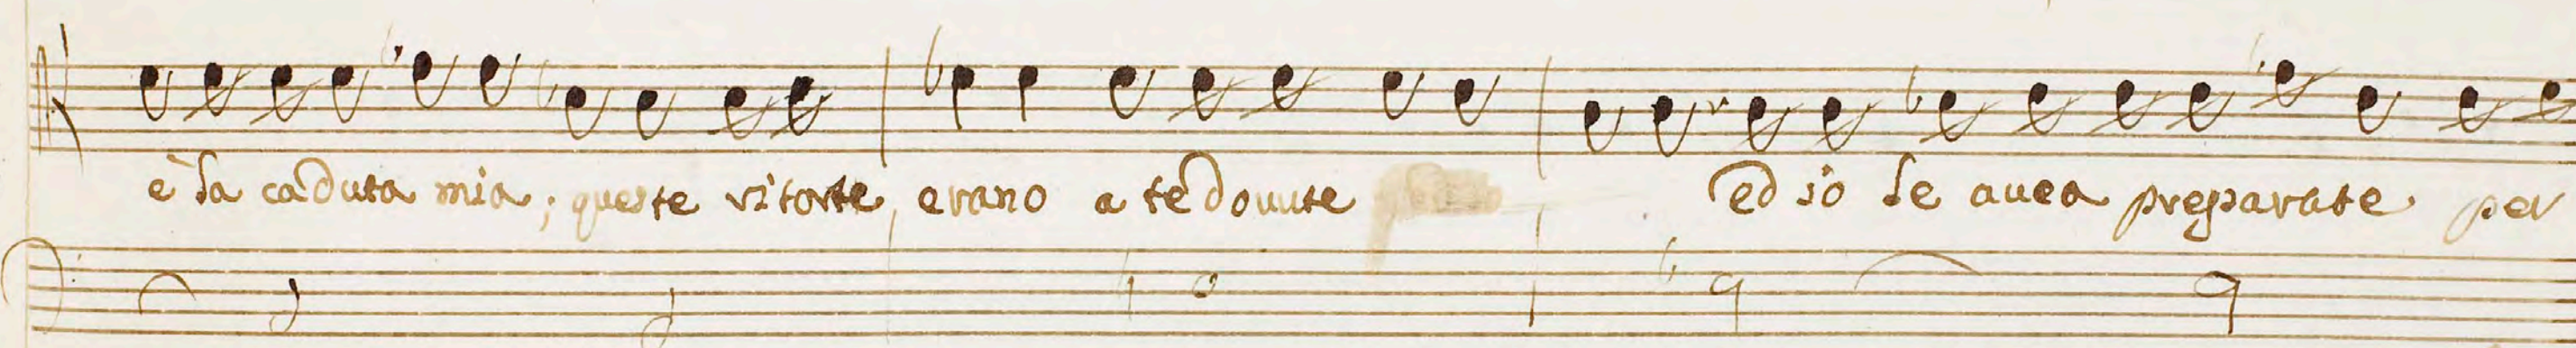 è la caduta mia; queste ritorte, erano a te dovute ed io le avea preparate per